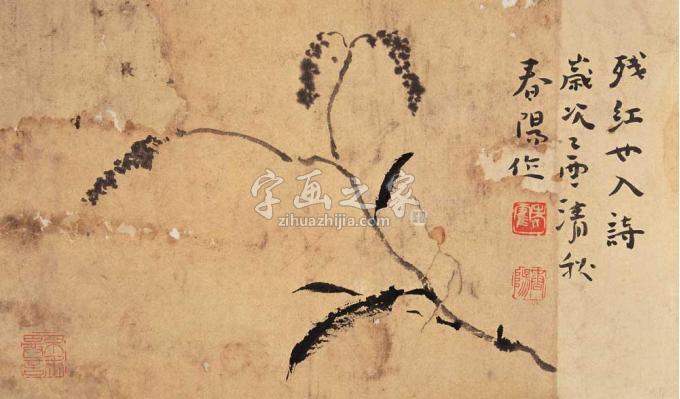 残红也入诗
岁次乙酉清秋
春陽作
字画之家
zihuazhijia.com